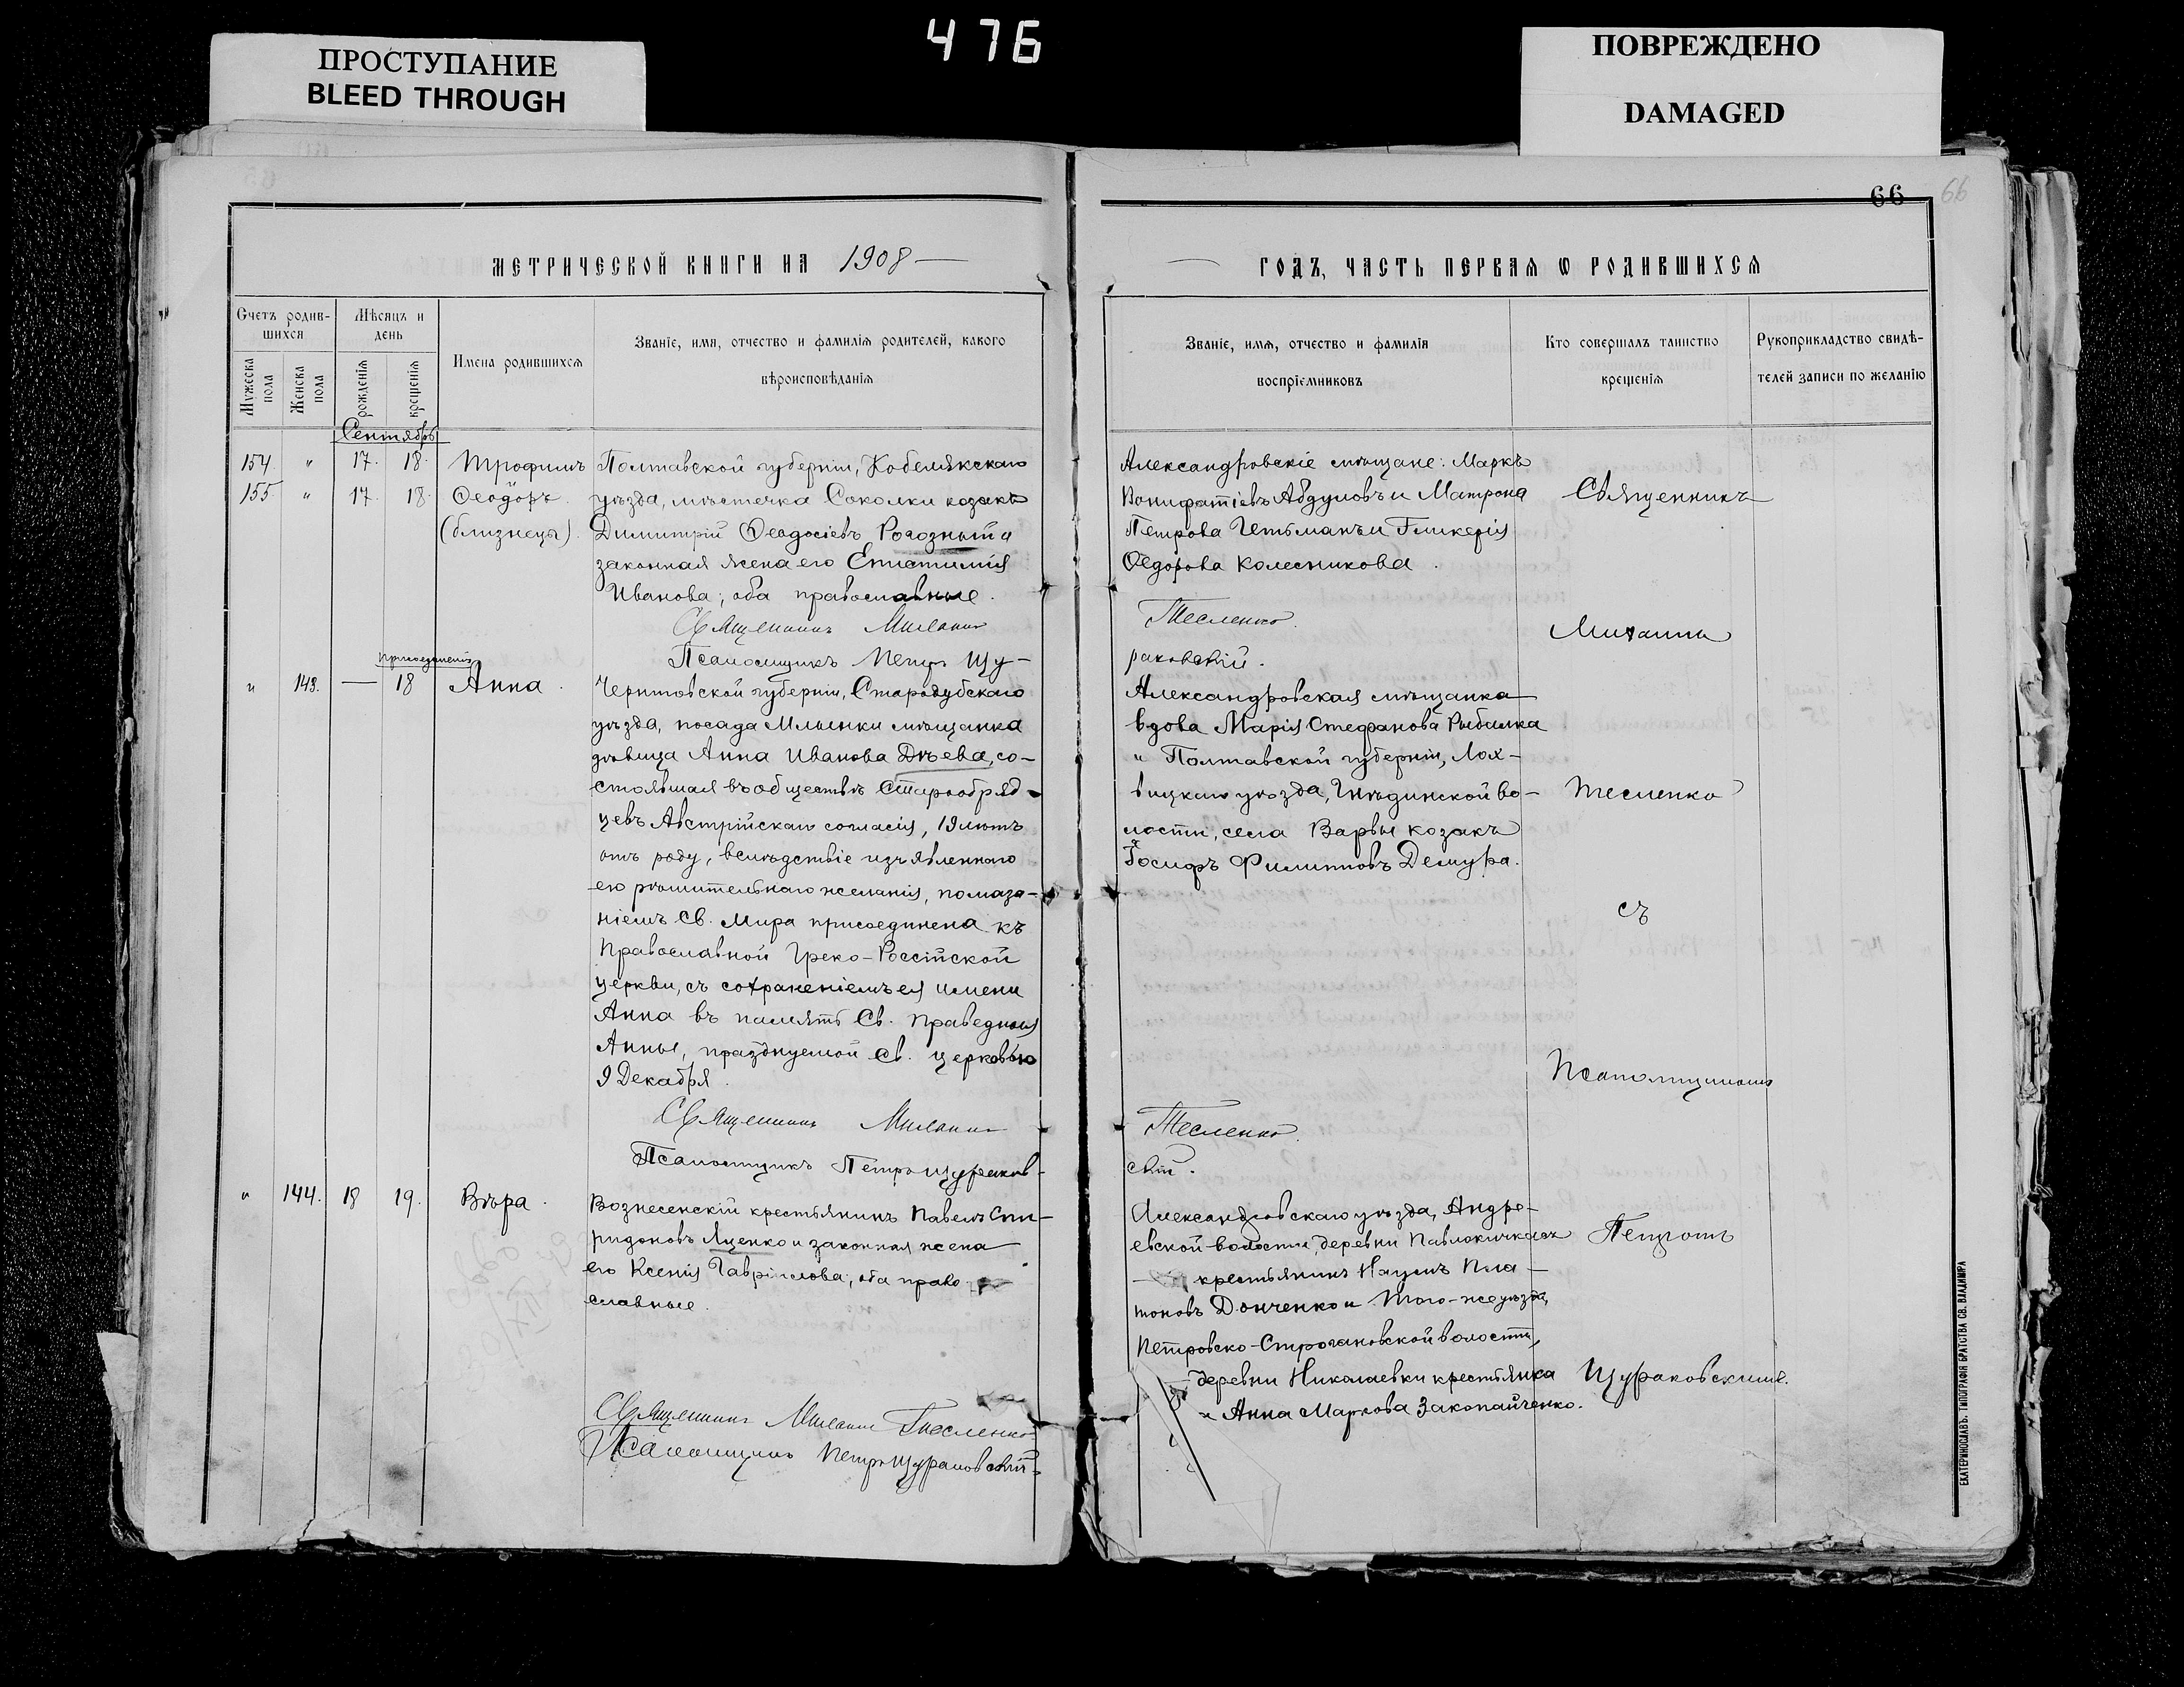 ПРОСТУПАНИЕ
BLEED THROUGH
476
ПОВРЕЖДЕНО
DAMAGED
66
66
МЕТРИЧЕСКОЙ КНИГИ НА 1908
Счетъ родив-
шихся
Мѣсяцъ и
день
Мужеска
пола
Женска
пола
рожденія
крещенія
Имена родившихся
Званіе, имя, отчество и фамилія родителей, какого
вѣроисповѣданія
Сентябрь
154. " 17. 18. Трофимъ
155. " 17. 18. Ѳеодоръ.
(близнецы).
Полтавской губерніи, Кобелякскаго
уѣзда, мѣстечка Соколки козакъ
Димитрій Ѳеодосіевъ Рогозный и
законная жена его Епистимія
Иванова; оба православные.
Священникъ Михаилъ
Псаломщикъ Петръ Щу-
присоединенія
" 143. — 18 Анна.
Черниговской губерніи, Стародубскаго
уѣзда, посада Млынки мѣщанка
дѣвица Анна Иванова Дѣева, со-
стоявшая въ обществѣ Старообряд-
цевъ Австрійскаго согласія, 19 лѣтъ
отъ роду, вслѣдствіе изъявленнаго
ею рѣшительнаго желанія, помаза-
ніемъ Св. Мира присоединена къ
Православной Греко-Россійской
церкви, съ сохраненіемъ ея имени
Анна въ память Св. Праведныя
Анны, празднуемой Св. церковью
9 Декабря.
Священникъ Михаилъ
Псаломщикъ Петръ Щураков-
" 144. 18 19. Вѣра.
Вознесенскій крестьянинъ Павелъ Спи-
ридоновъ Яценко и законная жена
его Ксенія Гавріилова; оба право-
славные.
Священникъ Михаилъ Тесленко
Псаломщикъ Петръ Щураковскій.
ГОДЪ, ЧАСТЬ ПЕРВАЯ Ѡ РОДИВШИХСЯ
Званіе, имя, отчество и фамилія
воспріемниковъ
Кто совершалъ таинство
крещенія
Рукоприкладство свидѣ-
телей записи по желанію
Александровскіе мѣщане: Маркъ
Вонифатіевъ Абдуловъ и Матрона
Петрова Гетьманъ и Гликерія
Ѳедорова Колесникова.
Тесленко.
раковскій.
Александровская мѣщанка
вдова Марія Стефанова Рыбалка
и Полтавской губерніи, Лох-
вицкаго уѣзда, Гнѣдинской во-
лости, села Варвы козакъ
Іосифъ Филипповъ Демура.
Тесленко.
скій.
Александровскаго уѣзда, Андре-
евской волости, деревни Павлокичкасъ
крестьянинъ Наумъ Пла-
тоновъ Донченко и того-же уѣзда,
Петровско-Строгановской волости,
деревни Николаевки крестьянка
Анна Маркова Закопайченко.
Священникъ
Михаилъ
Тесленко
съ
Псаломщикомъ
Петромъ
Щураковскимъ.
ЕКАТЕРИНОСЛАВЪ. ТИПОГРАФІЯ БРАТСТВА СВ. ВЛАДИМІРА